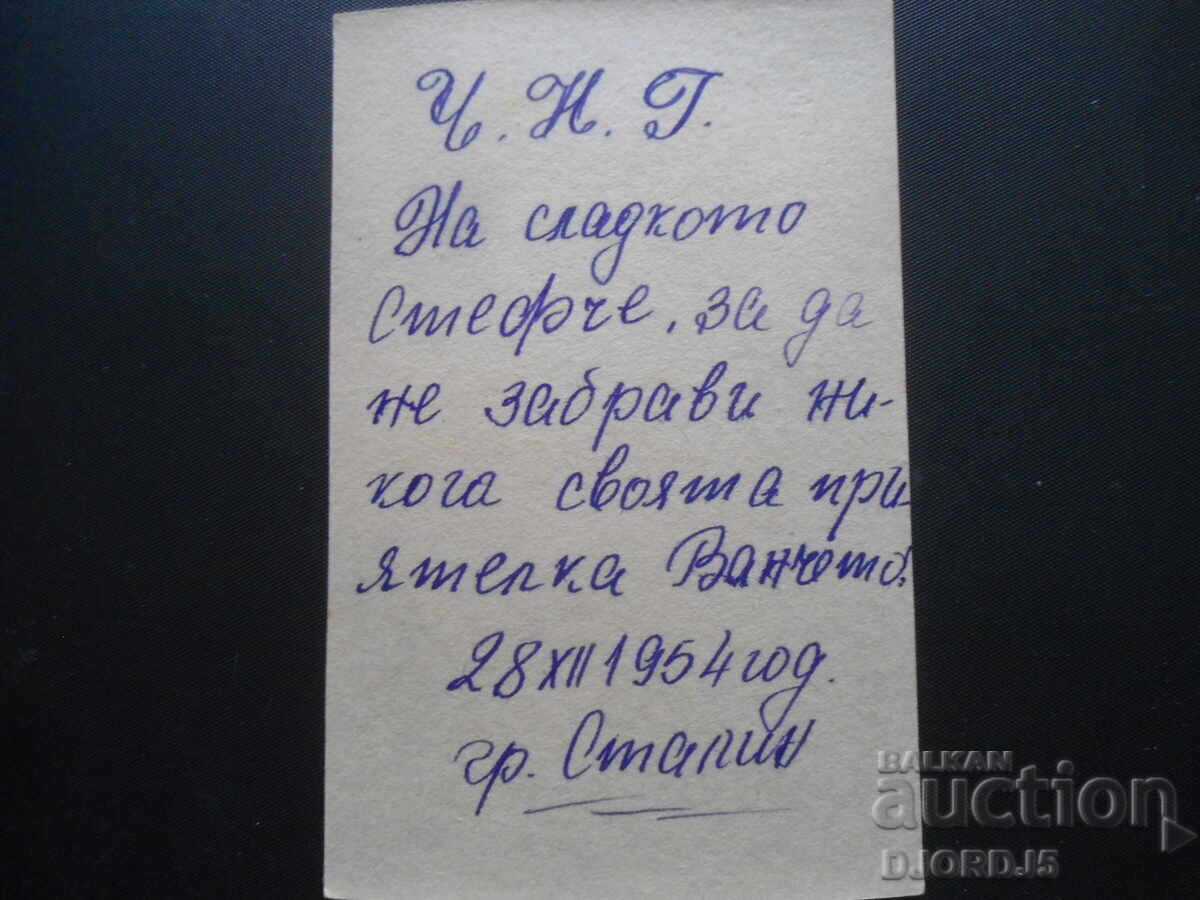 Ч. Н. Г.
На сладкото
Стефче, за да
не забрави ни-
кога своята при
ятелка Ванчето.
28 XII 1954 год.
гр. Сталин
BALKAN
auction
DJORDJ5